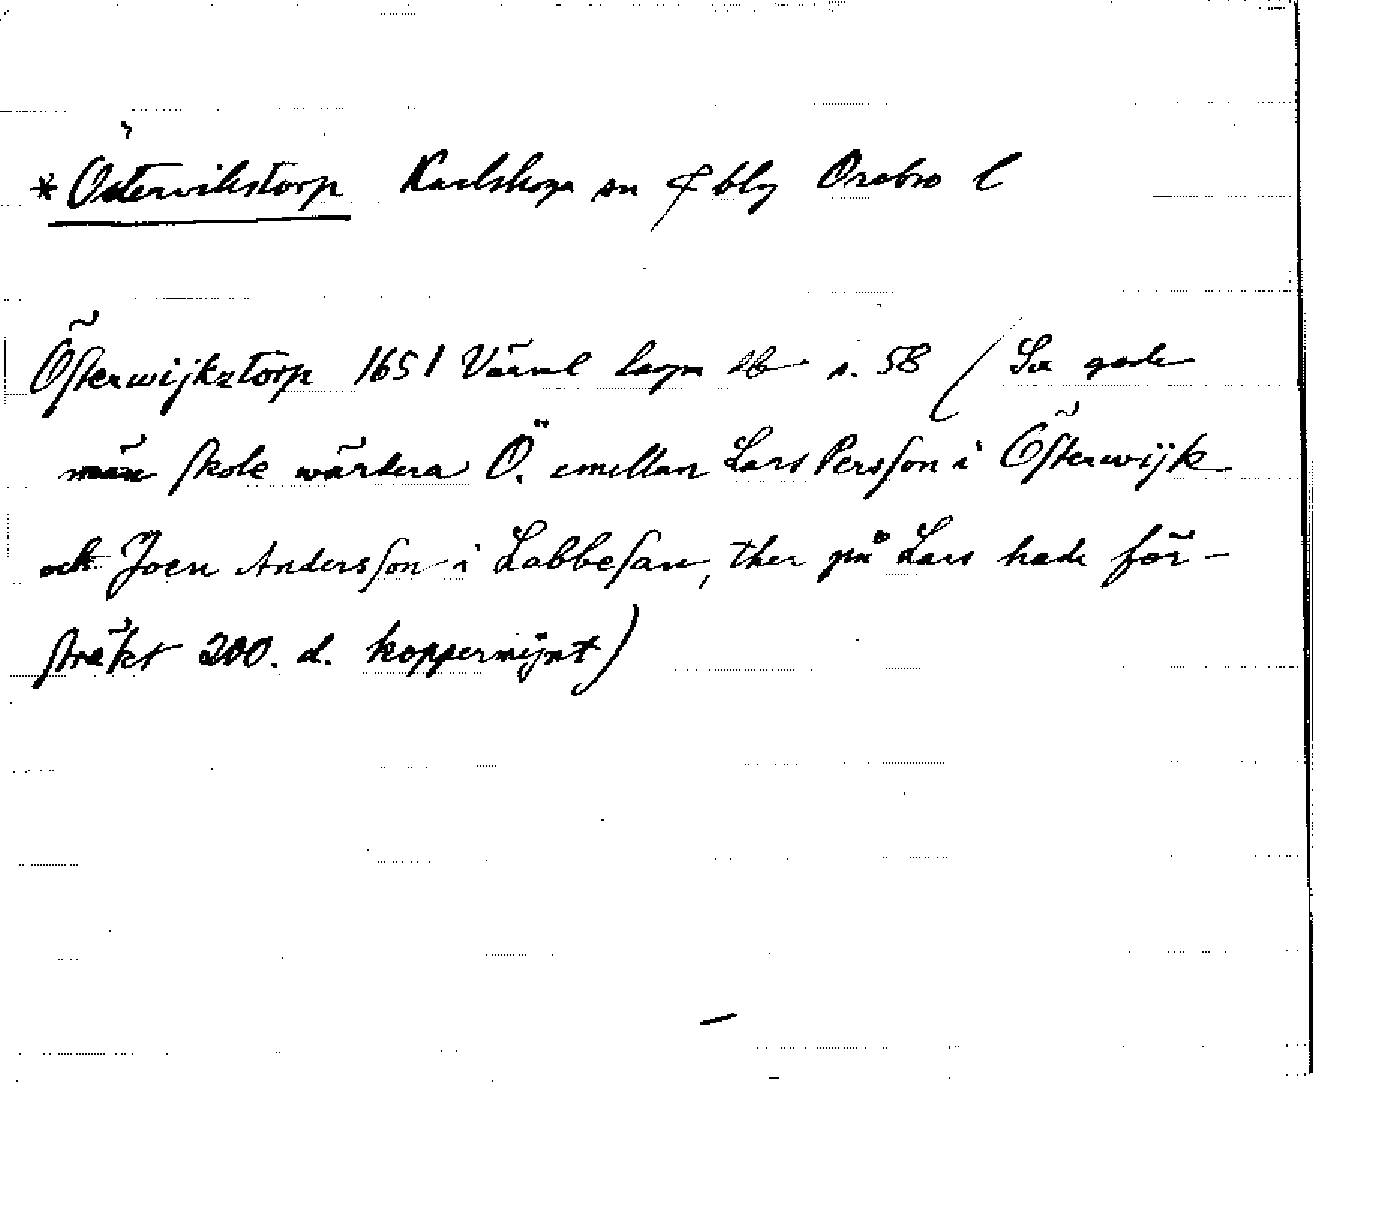 * Östervikstorp Karlskoga sn & blg Örebro l
Österwijkztorp 1651 Värml lagm db s. 58 (Sex gode
män skole wärdera Ö. emellan Lars Persson i Österwijk
och Joen Andersson i Labbesan, ther på Lars hade för-
sträkt 200. d. koppermijnt)